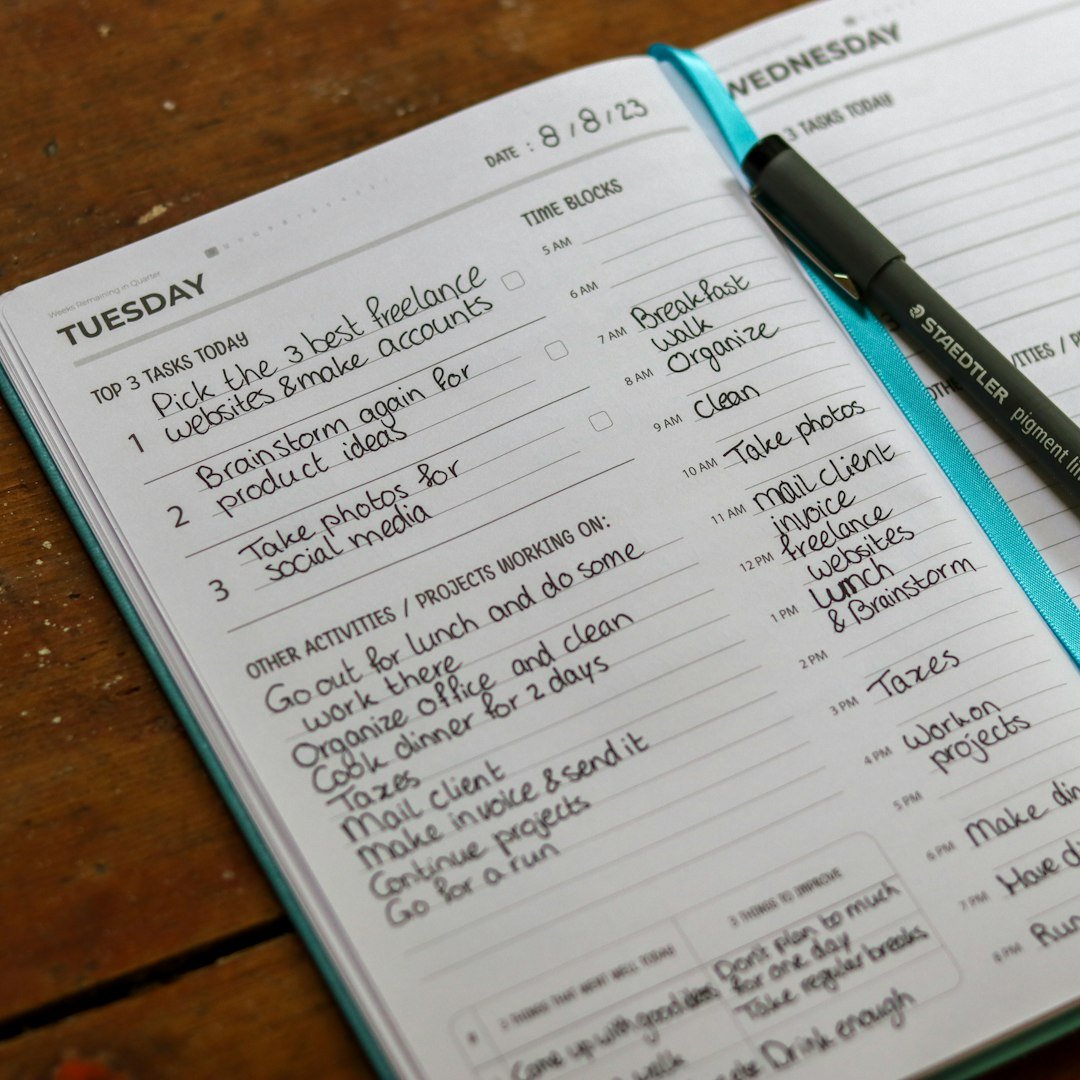 Weeks Remaining in Quarter
TUESDAY
DATE : 8/8/23
TOP 3 TASKS TODAY
1 Pick the 3 best freelance
websites & make accounts
2 Brainstorm again for
product ideas
3 Take photos for
social media
OTHER ACTIVITIES / PROJECTS WORKING ON:
Go out for lunch and do some
work there
Organize office and clean
Cook dinner for 2 days
Taxes
Mail client
Make invoice & send it
Continue projects
Go for a run
TIME BLOCKS
5 AM
6 AM
7 AM Breakfast
walk
8 AM Organize
9 AM Clean
10 AM Take photos
11 AM Mail client
invoice
12 PM freelance
websites
1 PM Lunch
& Brainstorm
2 PM
3 PM Taxes
4 PM Work on
projects
5 PM
6 PM Make
7 PM Have
8 PM
3 THINGS THAT WENT WELL TODAY
Come up with good
walk
3 THINGS TO IMPROVE
Don't plan to much
for one day
Take regular breaks
Drink enough
WEDNESDAY
3 TASKS TODAY
STAEDTLER
pigment